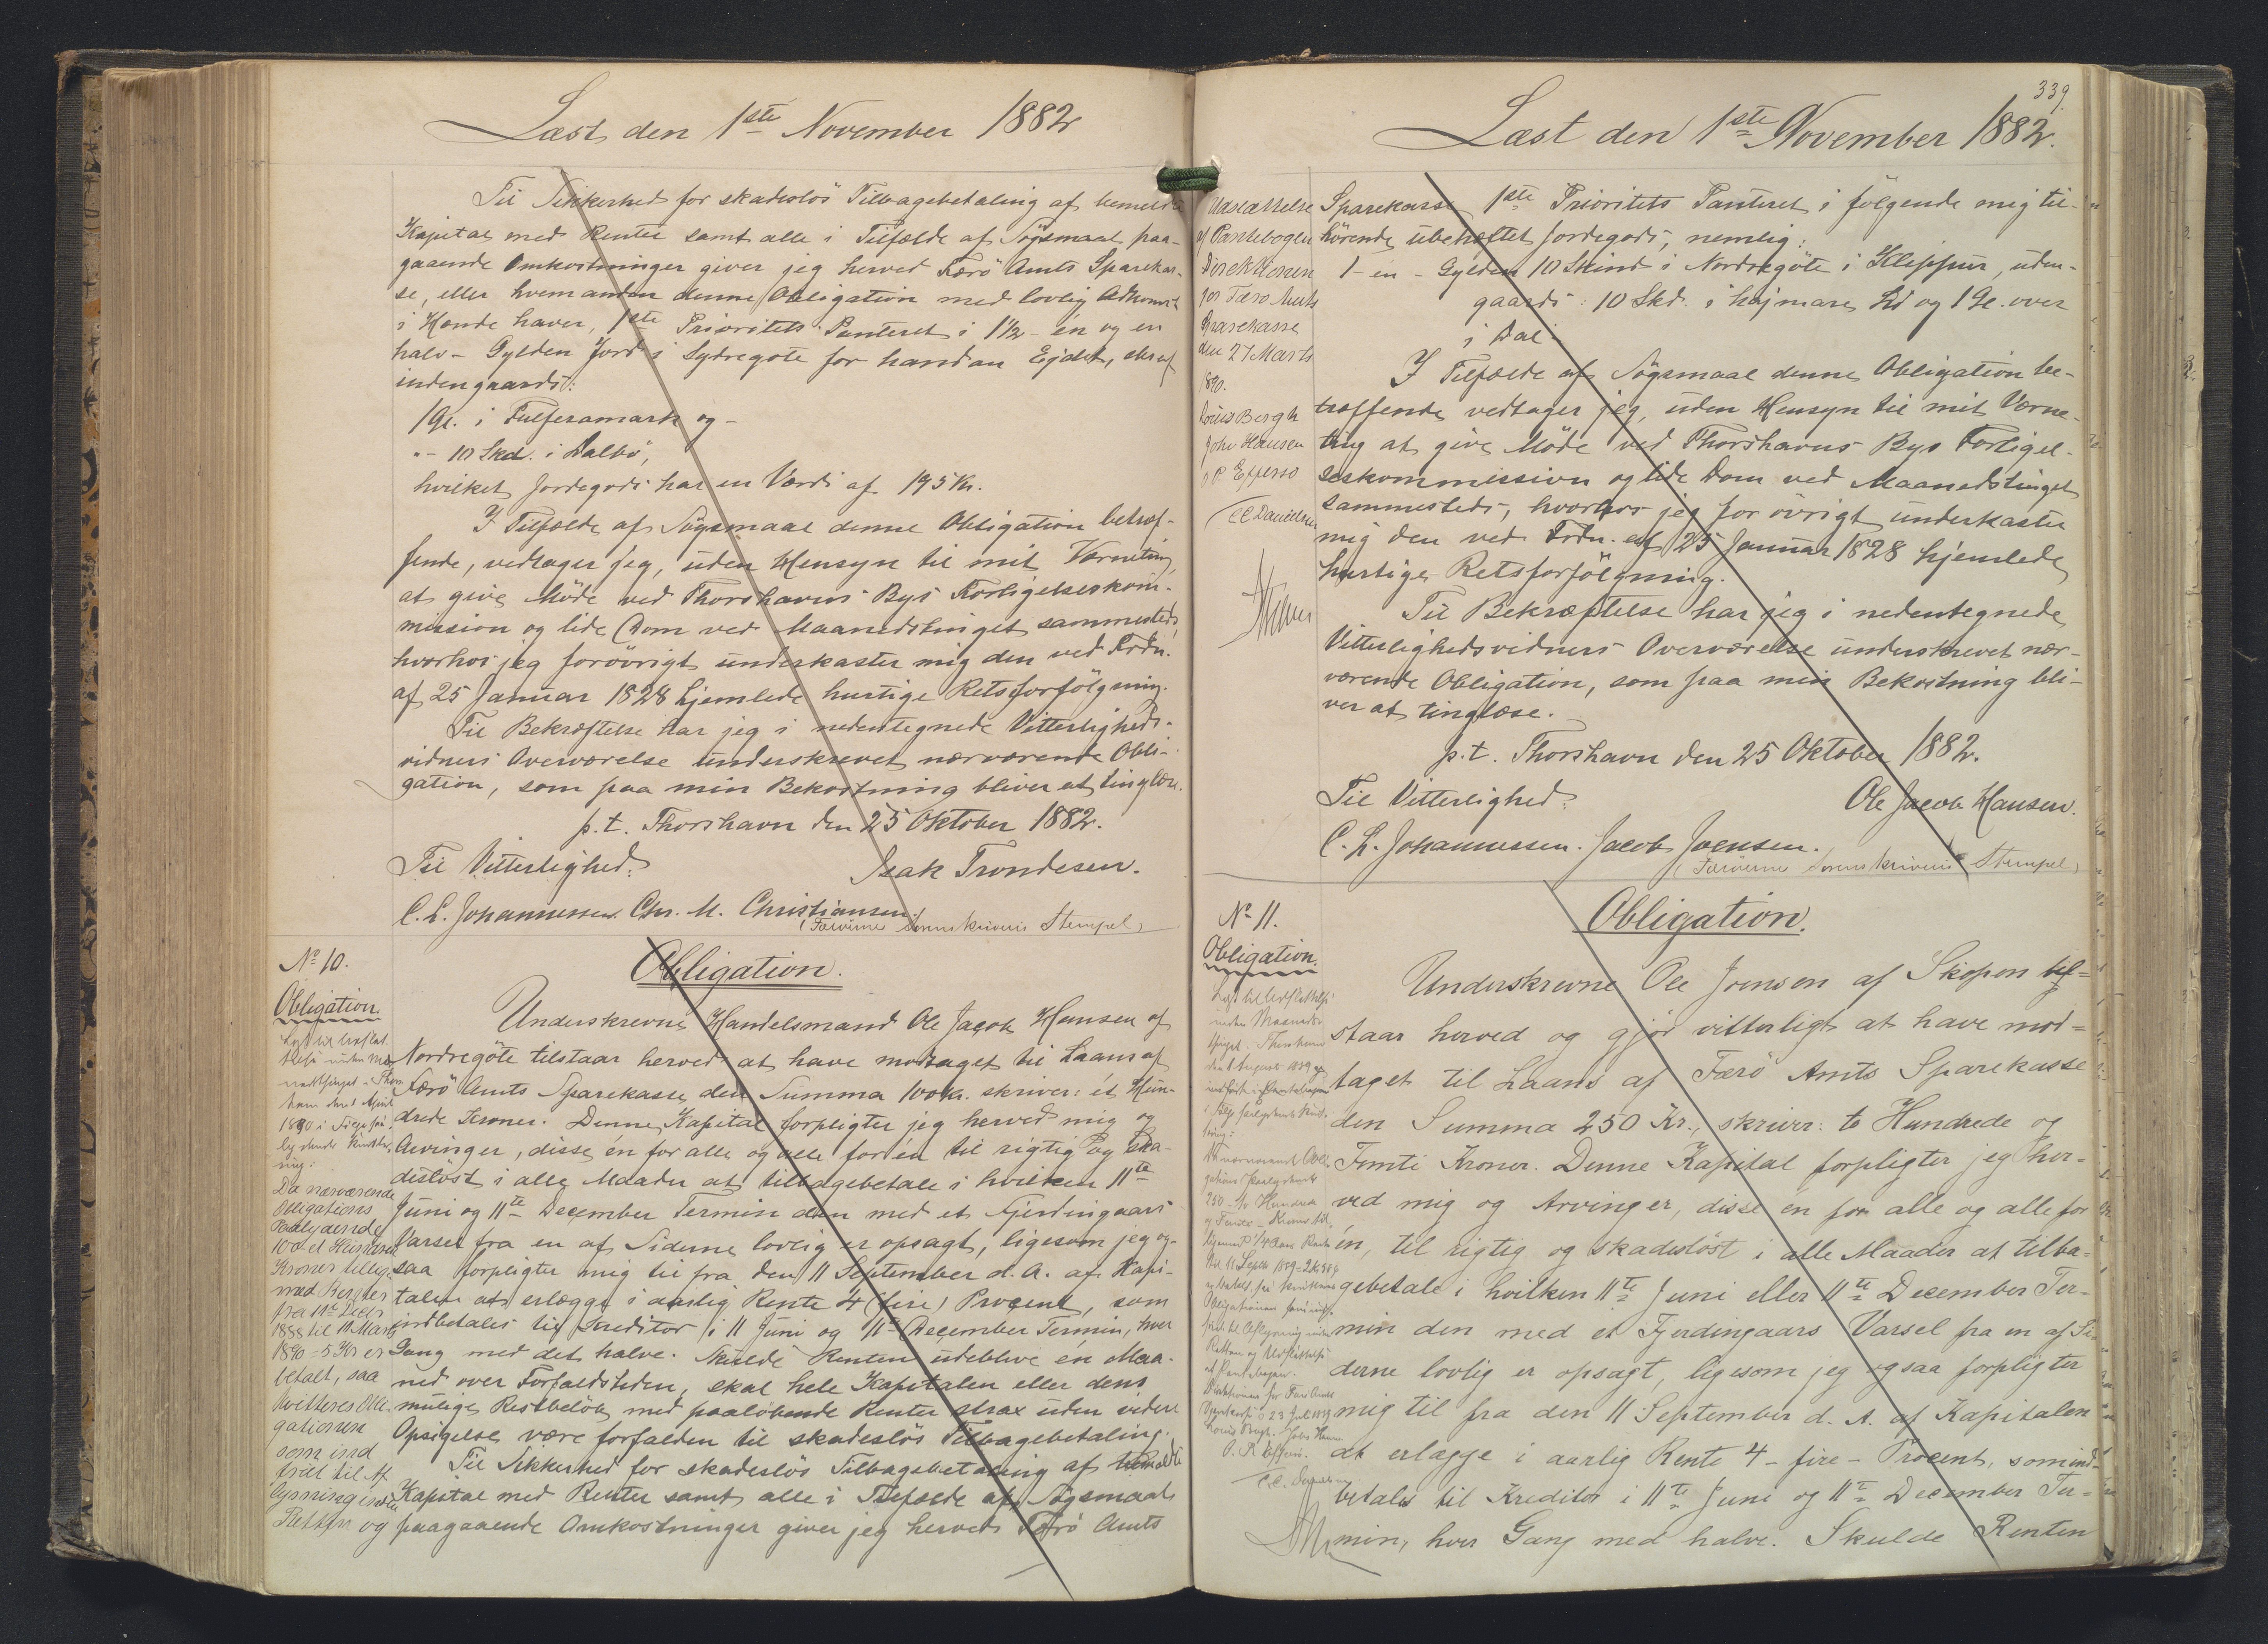 Læst den 1ste November 1882
Til Sikkerhed for skadeslös Tilbagebetaling af bemeldte
Kapital med Renter samt alle i Tilfælde af Sögsmaal paa-
gaaende Omkostninger giver jeg herved Færö Amts Sparekas-
se, eller hvem anden denne Obligation med lovlig Adkomst
i Hænde haver, 1ste Prioritets Panteret i 1½ - en og en
halv - Gylden Jord i Sydregöte for
indengaards:
1 Gl. i Fulferamark og -
"- 10 Skd. i Dalbö,
hvilket Jordegods har en Værdi af 195 Kr.
I Tilfælde af Sögsmaal denne Obligation betræf-
fende, vedtager jeg, uden Hensyn til mit Værneting,
at give Möde ved Thorshavns Bys Forligelseskom-
mission og lide Dom ved Maanedstinget sammesteds,
hvorhos jeg forövrigt underkaster mig den ved Frdn.
af 25 Januar 1828 hjemlede hurtige Retsforfölgning.
Til Bekræftelse har jeg i nedentegnede Vitterligheds-
vidners Overværelse underskrevet nærværende Obli-
gation, som paa min Bekostning bliver at tinglæse.
p.t. Thorshavn den 25 Oktober 1882.
Til Vitterlighed: Isak Trondesen.
C. L. Johannessen. Chr. M. Christiansen.
(Færöernes Sorenskriveris Stempel)
No 10.
Obligation.
Obligation.
Underskrevne Handelsmand Ole Jacob Hansen af
Nordregöte tilstaar herved at have modtaget til Laans af
Færö Amts Sparekasse den Summa 100 Kr. skriver: ét Hun-
drede Kroner. Denne Kapital forpligter jeg herved mig og
Arvinger, disse én for alle og alle for én til rigtig og ska-
deslöst i alle Maader at tilbagebetale i hvilken 11te
Juni og 11te December Termin den med et Fjerdingaars
Varsel fra en af Siderne lovlig er opsagt, ligesom jeg og-
saa forpligter mig til fra den 11 September d. A. af Kapi-
talen at erlægge i aarlig Rente 4 (fire) Procent, som
indbetales til Kreditor i 11 Juni og 11te December Termin, hver
Gang med det halve. Skulde Renten udeblive én Maa-
ned over Forfaldstiden, skal hele Kapitalen eller dens
mulige Restbelöb med paalöbende Renter strax uden videre
Opsigelse være forfalden til skadeslös Tilbagebetaling.
Til Sikkerhed for skadeslös Tilbagebetaling af bemeldte
Kapital med Renter samt alle i Tilfælde af Sögsmaal
paagaaende Omkostninger giver jeg herved Færö Amts
Da nærværende
Obligations
Paalydende
100 - et Hundrede
Kroner tillig-
med Renter
fra 11te Decbr
1888 til 11 Marts
1890 = 5 Kr er
betalt, saa
kvitteres Obli-
gationen
som ind-
friet til Af-
lysning inden
Retten og
339.
Læst den 1ste November 1882.
Udslettelse
af Pantebogen
Direktionen
for Færö Amts
Sparekasse
den 27 Marts
1890.
Louis Bergh
John Hansen
C C Danielsen
Sparekasse 1ste Prioritets Panteret i fölgende mig til-
hörende ubehæftet Jordegods, nemlig:
1 - en - Gylden 10 Skind i Nordregöte i Klippur, uden-
gaards: 10 Skd. i hojmare Lid og 1 Gl. over
i Dal.
I Tilfælde af Sögsmaal denne Obligation be-
træffende vedtager jeg, uden Hensyn til mit Værne-
ting at give Möde ved Thorshavns Bys Forligel-
seskommission og lide Dom ved Maanedstinget
sammesteds, hvorhos jeg for övrigt underkaster
mig den ved Frdn. af 25 Januar 1828 hjemlede
hurtige Retsforfölgning.
Til Bekræftelse har jeg i nedentegnede
Vitterlighedsvidners Overværelse underskrevet nær-
værende Obligation, som paa min Bekostning bli-
ver at tinglæse.
p.t. Thorshavn den 25 Oktober 1882.
Til Vitterlighed: Ole Jacob Hansen.
C. L. Johannessen. Jacob Joensen.
(Færöernes Sorenskriveris Stempel)
No 11.
Obligation.
Obligation.
Underskrevne Ole Joensen af Skopen til-
staar herved og gjör vitterligt at have mod-
taget til Laans af Færö Amts Sparekasse
den Summa 250 Kr., skriver: to Hundrede og
Femti Kroner. Denne Kapital forpligter jeg her-
ved mig og Arvinger, disse én for alle og alle for
én, til rigtig og skadeslöst i alle Maader at tilba-
gebetale i hvilken 11te Juni eller 11te December Ter-
min den med et Fjerdingaars Varsel fra en af Si-
derne lovlig er opsagt, ligesom jeg ogsaa forpligter
mig til fra den 11 September d. A. af Kapitalen
at erlægge i aarlig Rente 4 - fire - Procent, som ind-
betales til Kreditor i 11te Juni og 11te December Ter-
min, hver Gang med halve. Skulde Renten